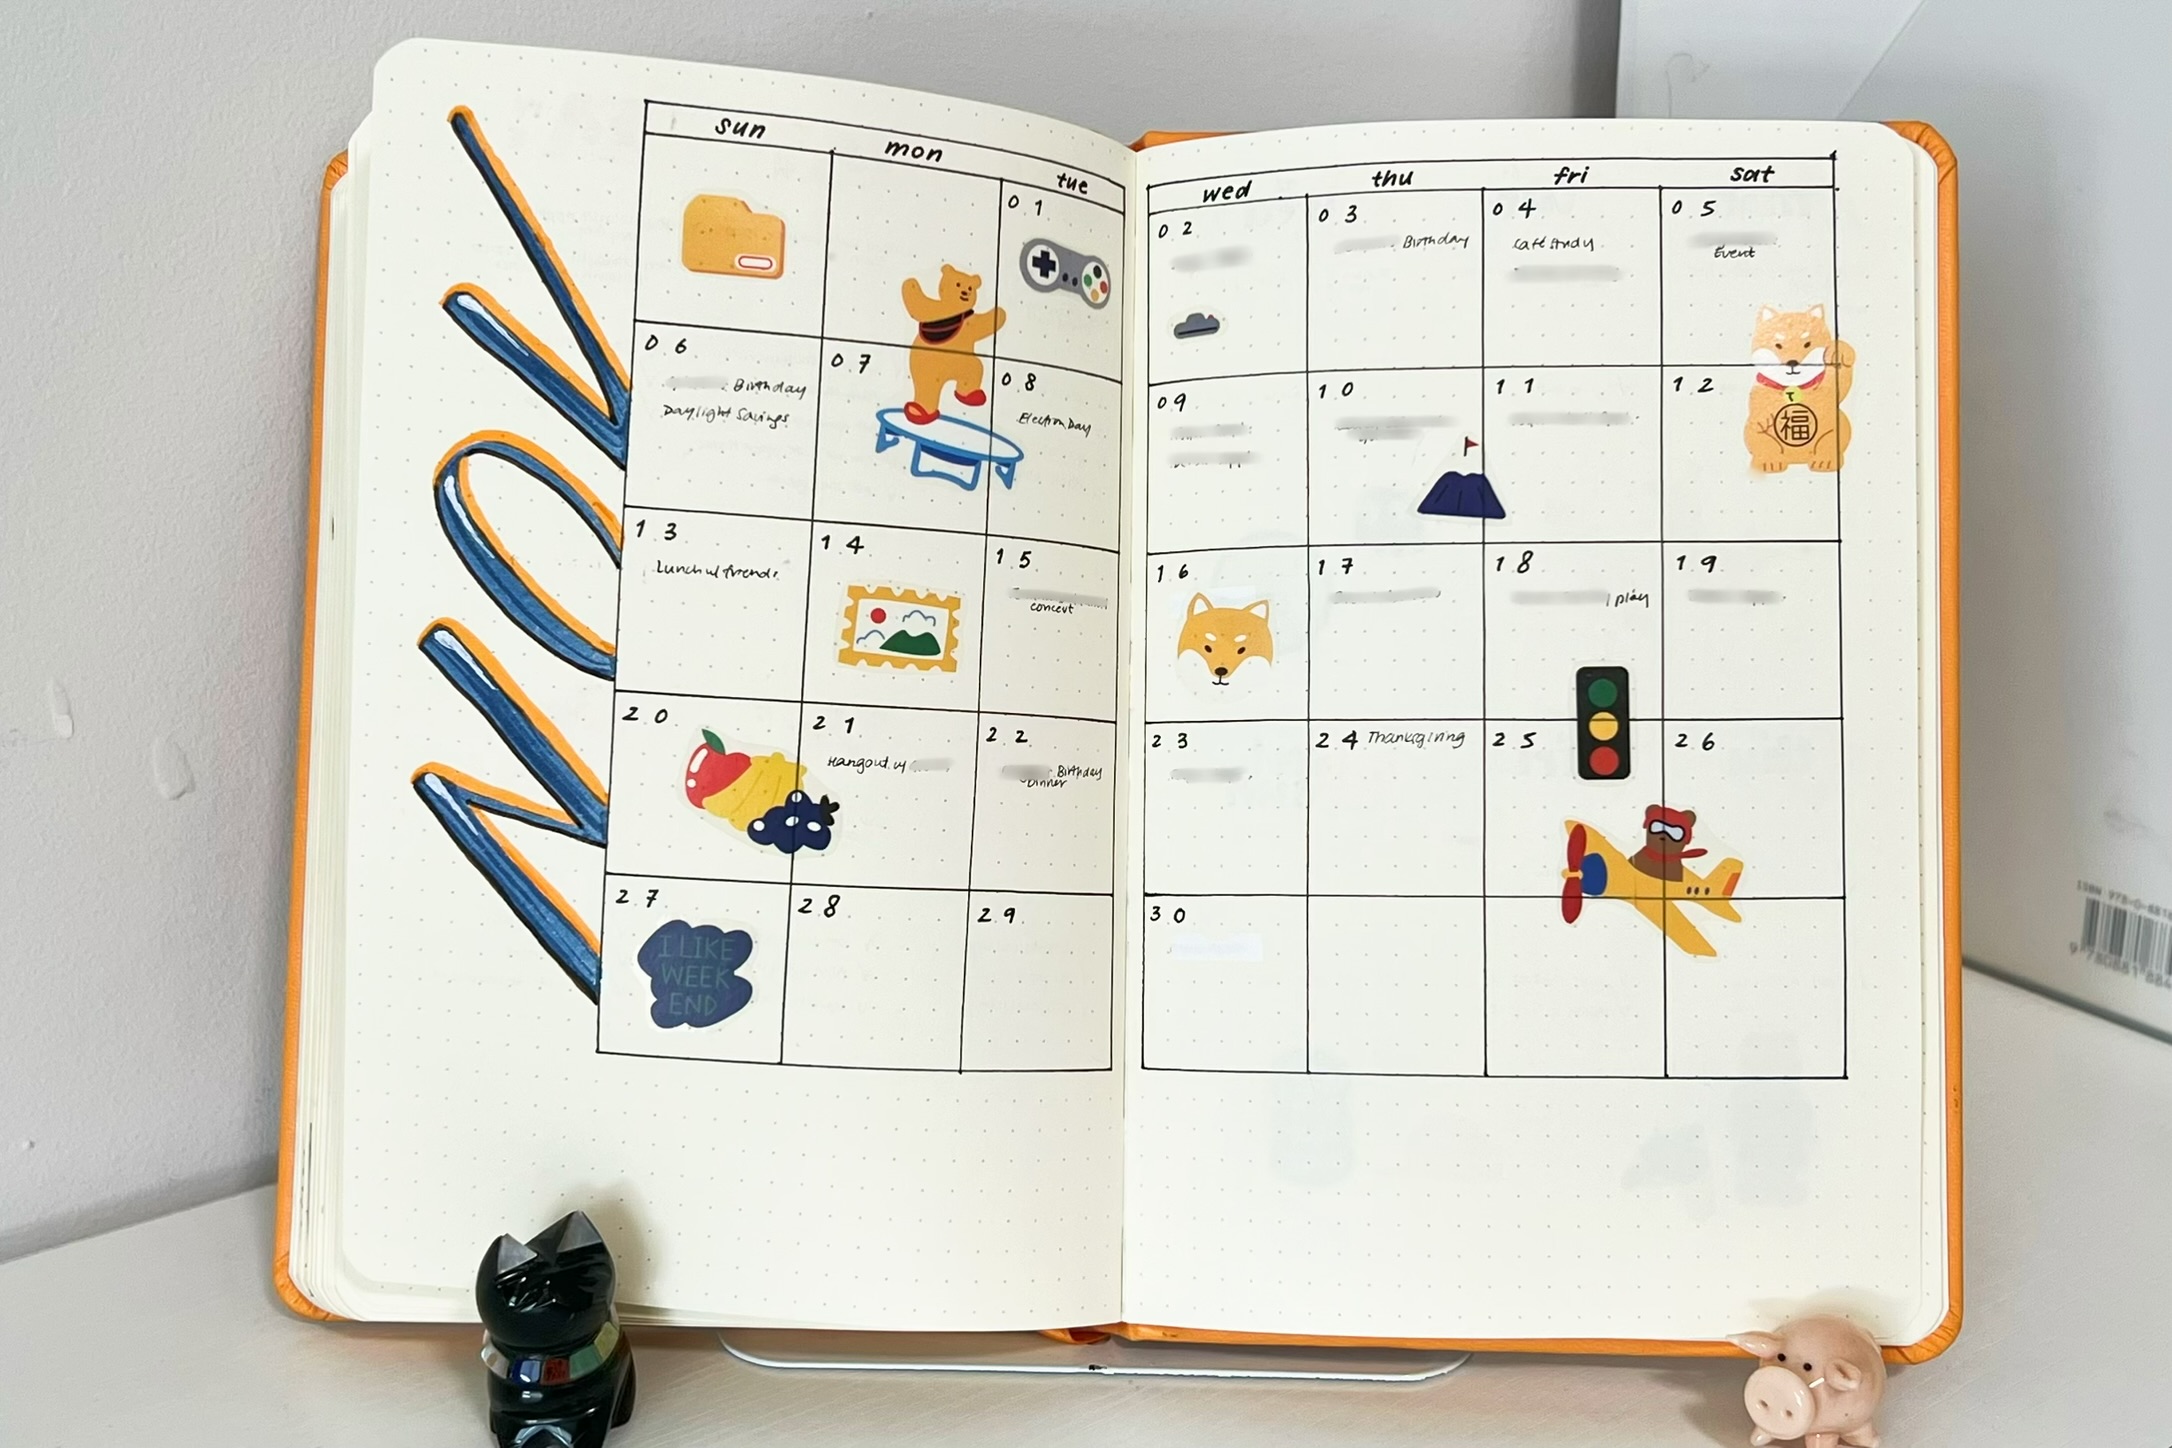 NOV
sun mon tue wed thu fri sat
01
02
03
Birthday
04
café study
05
Event
06
Birthday
Daylight Savings
07
08
Election Day
09
10
11
12
福
13
Lunch w/ friends
14
15
concert
16
17
18
play
19
20
21
Hangout w/
22
Birthday
Dinner
23
24 Thanksgiving
25
26
27
I LIKE
WEEK
END
28
29
30